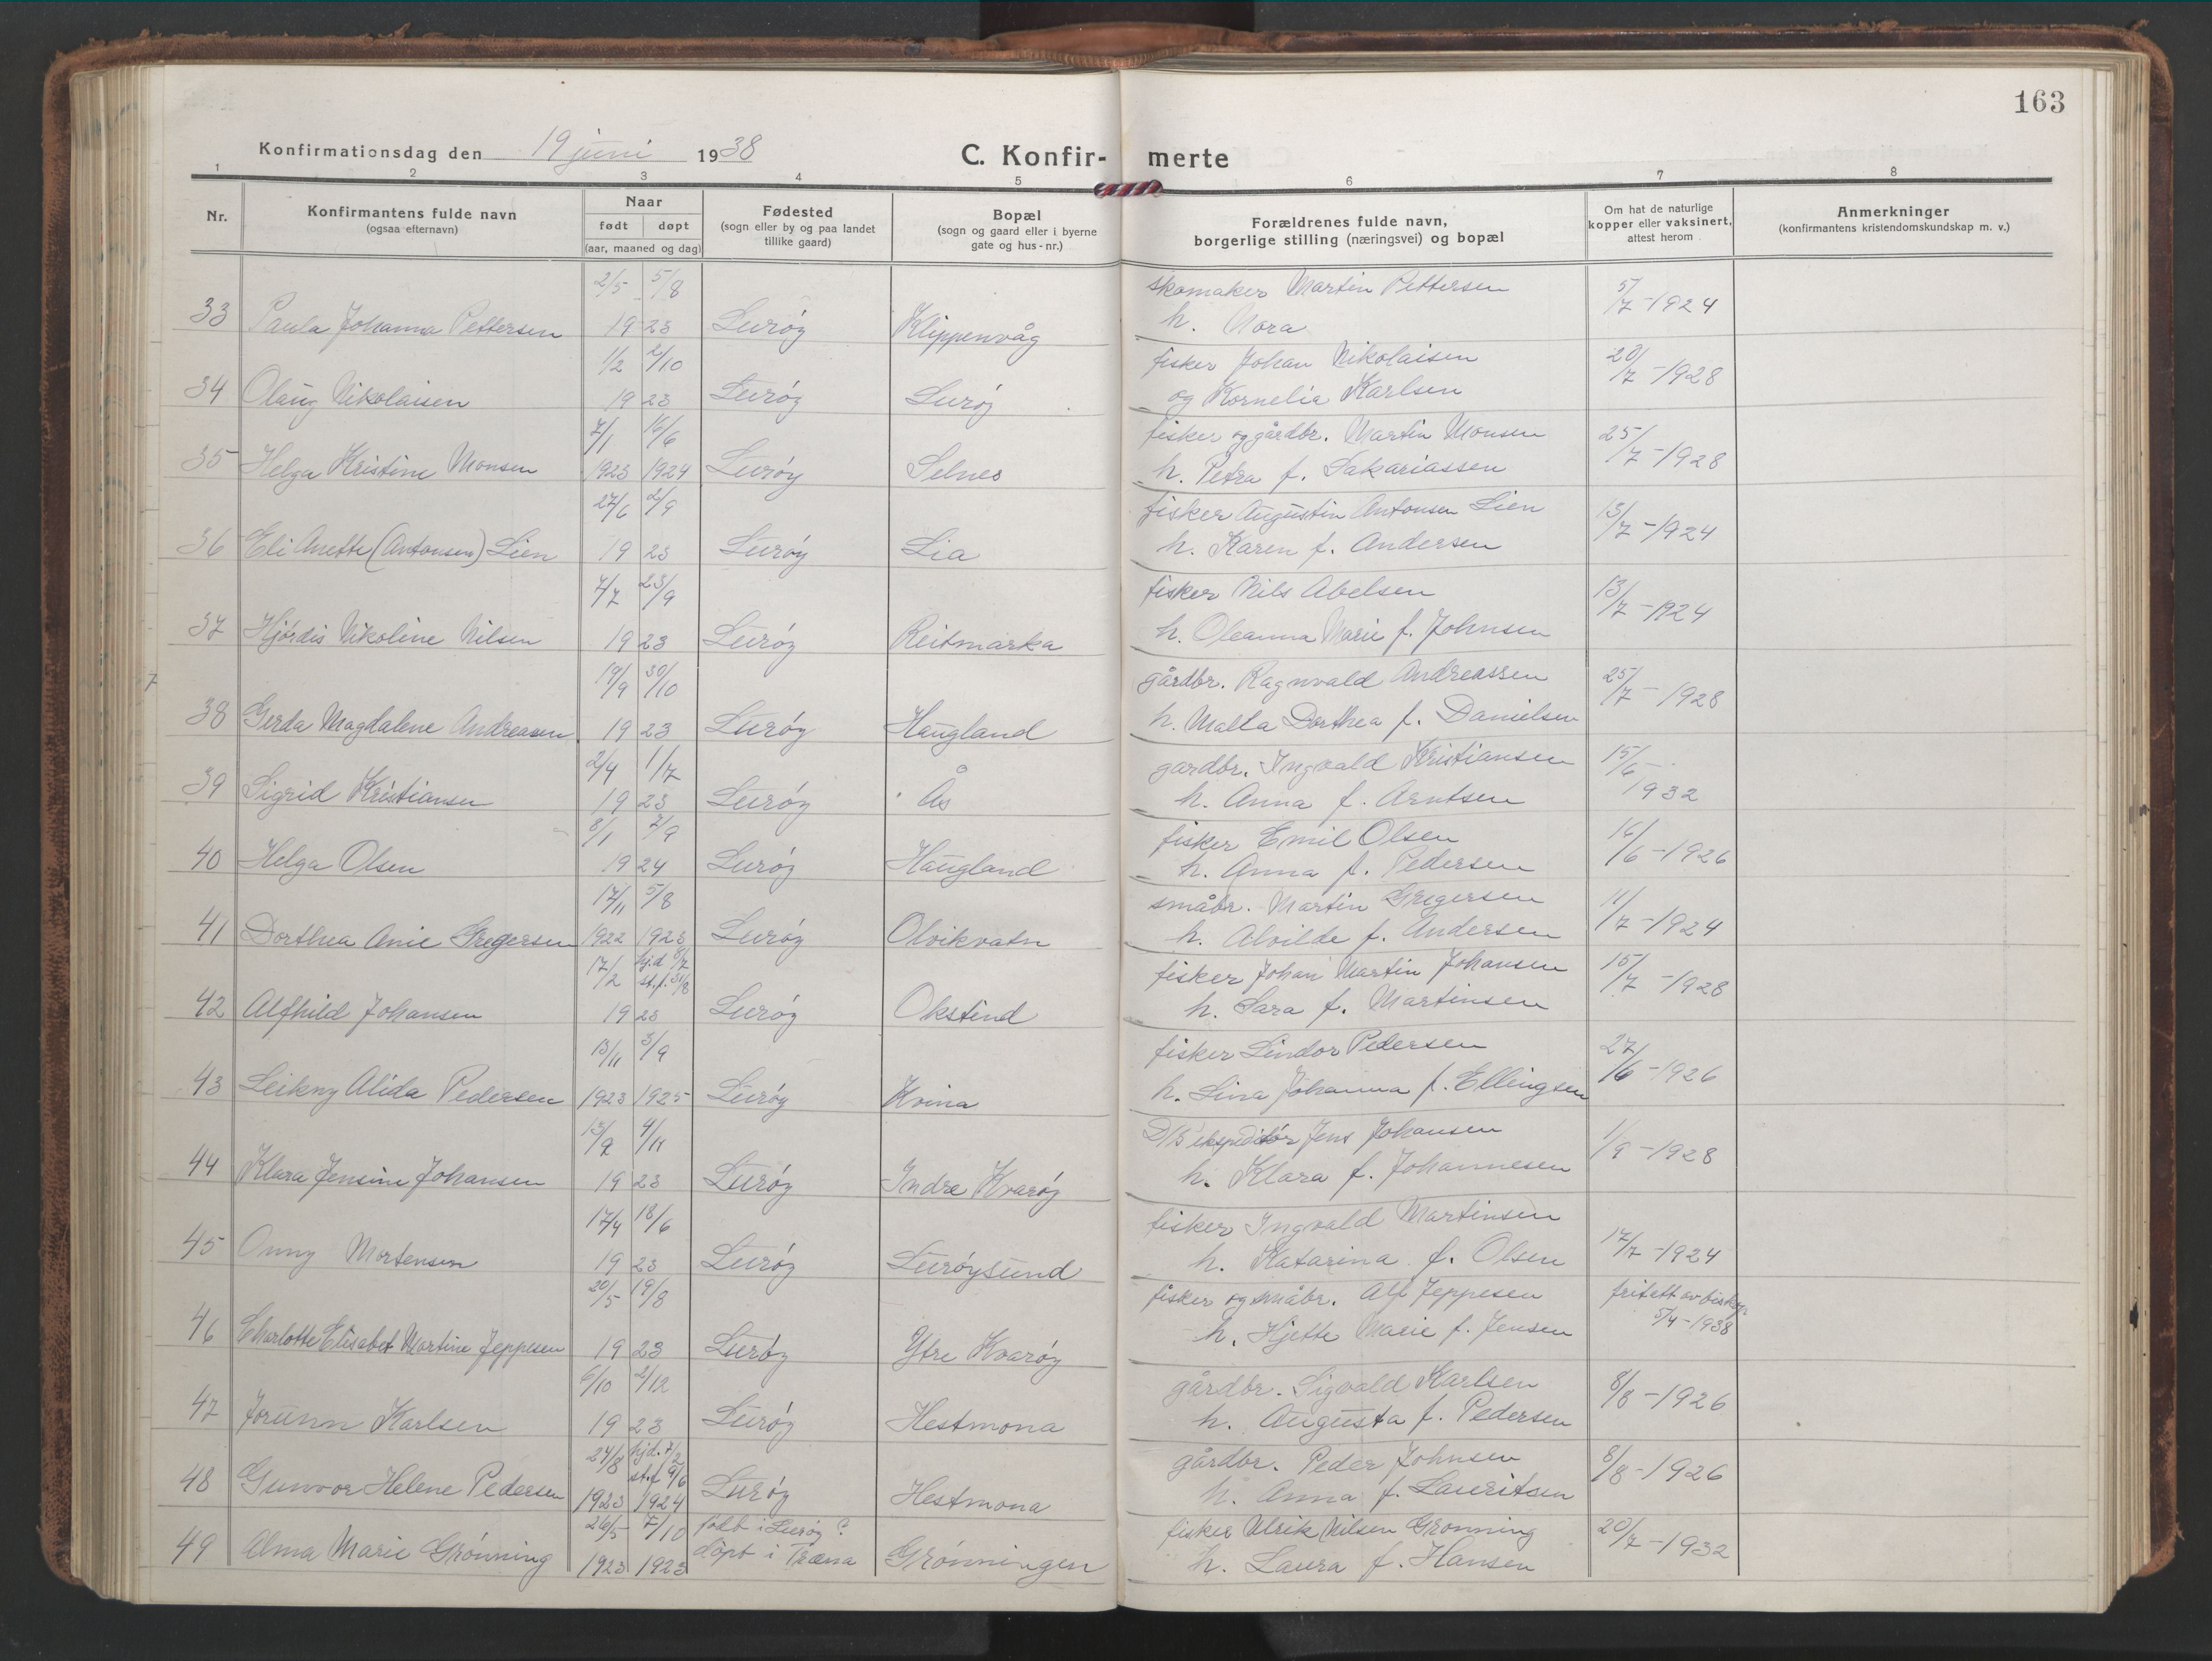 163
Konfirmationsdag den 19 juni 1938
C. Konfirmerte
1 2 3 4 5 6 7 8
Nr.
Konfirmantens fulde navn
(ogsaa efternavn)
Naar
født døpt
(aar, maaned og dag)
Fødested
(sogn eller by og paa landet
tillike gaard)
Bopæl
(sogn og gaard eller i byerne
gate og hus-nr.)
Forældrenes fulde navn,
borgerlige stilling (næringsvei) og bopæl
Om hat de naturlige
kopper eller vaksinert,
attest herom
Anmerkninger
(konfirmantens kristendomskundskap m. v.)
2/5 5/8 skomaker Martin Pettersen 5/7-1924
33 Paula Johanna Pettersen 1923 Lurøy Klippenvåg h. Nora
1/2 2/10 fisker Johan Nikolaisen 20/7-1928
34 Olaug Nikolaisen 1923 Lurøy Lurøy og Kornelia Karlsen
7/1 16/6 fisker og gårdbr. Martin Monsen 25/7-1928
35 Helga Kristine Monsen 1923 1924 Lurøy Selnes h. Petra f. Sakariassen
27/6 2/9 fisker Augustin Antonsen Lien 13/7-1924
36 Eli Anette (Antonsen) Lien 1923 Lurøy Lia h. Karen f. Andersen
7/7 23/9 fisker Nils Abelsen 13/7-1924
37 Hjørdis Nikoline Nilsen 1923 Lurøy Reitmarka h. Oleanna Marie f. Johnsen
19/9 30/10 gårdbr. Ragnvald Andreassen 25/7-1928
38 Gerda Magdalene Andreasen 1923 Lurøy Haugland h. Malla Dorthea f. Danielsen
2/4 1/7 gardbr. Ingvald Kristiansen 15/6-
39 Sigrid Kristiansen 1923 Lurøy Ås h. Anna f. Arntsen 1932
8/1 7/9 fisker Emil Olsen 16/6-1926
40 Helga Olsen 1924 Lurøy Haugland h. Anna f. Pedersen
17/11 5/8 småbr. Martin Gregersen 11/7-1924
41 Dorthea Anie Gregersen 1922 1923 Lurøy Olvikvatn h. Alvilde f. Andersen
17/2 hj.d 8/7 fisker Johan Martin Johansen 15/7-1928
st.f. 31/8
42 Alfhild Johansen 1923 Lurøy Okstind h. Sara f. Martinsen
13/11 3/9 fisker Lindor Pedersen 27/6-1926
43 Leikny Alida Pedersen 1923 1925 Lurøy Kvina h. Lina Johanna f. Ellingsen
13/9 4/11 D/S ekspeditør Jens Johansen 1/9-1928
44 Klara Jensine Johansen 1923 Lurøy Indre Kvarøy h. Klara f. Johannesen
17/4 18/6 fisker Ingvald Martinsen
45 Onny Mortensen 1923 Lurøy Lurøysund h. Katarina f. Olsen 17/7-1924
20/5 19/8 fisker og småbr. Alf Jeppesen fritatt av biskop
46 Charlotte Elisabet Martine Jeppesen 1923 Lurøy Ytre Kvarøy h. Hjette Marie f. Jensen 5/4-1938
6/10 2/12 gårdbr. Sigvald Karlsen 8/8-1926
47 Jorunn Karlsen 1923 Lurøy Hestmona h. Augusta f. Pedersen
24/8 hjd. 7/2 gårdbr. Peder Johnsen 8/8-1926
st.f 9/6
48 Gunvor Helene Pedersen 1923 1924 Lurøy Hestmona h. Anna f. Lauritsen
26/5 7/10 født i Lurøy? fisker Ulrik Nilsen Grønning 20/7-1932
49 Alma Marie Grønning 1923 1923 døpt i Træna Grønningen h. Laura f. Hansen